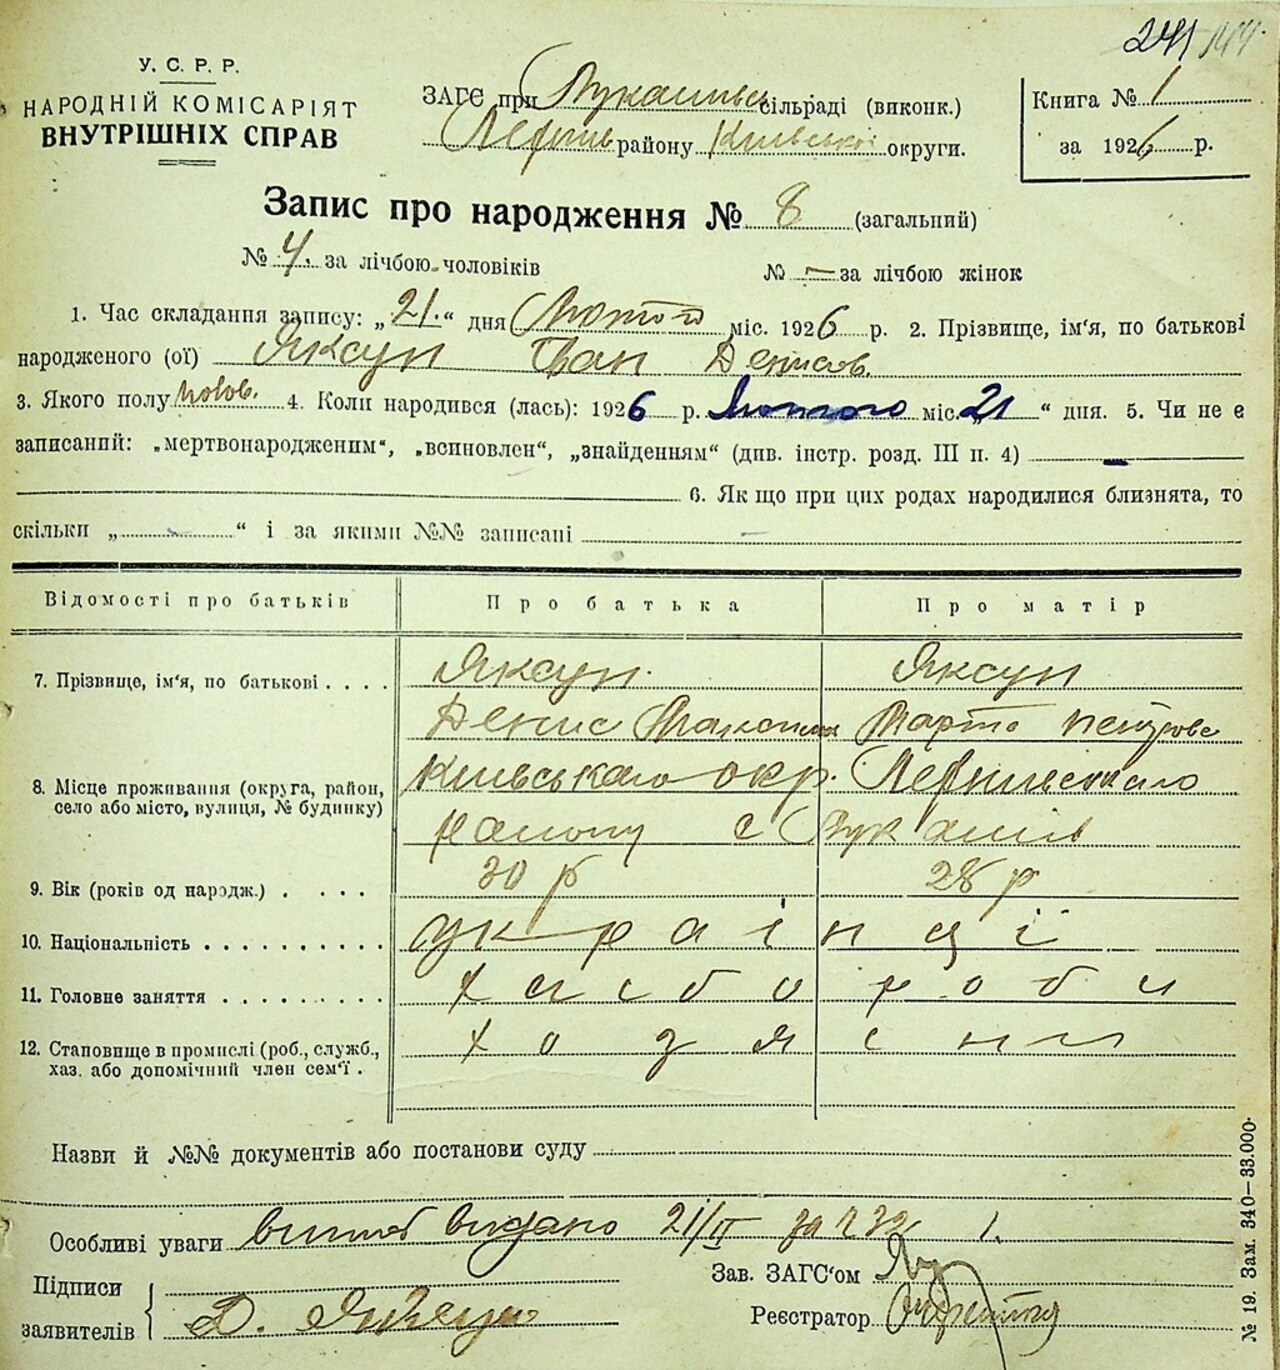 241
У. С. Р. Р.
НАРОДНІЙ КОМІСАРІЯТ
ВНУТРІШНІХ СПРАВ
ЗАГС при Лукашівс сільраді (виконк.)
району Київської округи.
Книга № 1
за 1926 р.
Запис про народження № 8 (загальний)
№ 4. за лічбою чоловіків № — за лічбою жінок
1. Час складання запису: „21.“ дня Лютого міс. 1926 р. 2. Прізвище, ім'я, по батькові
народженого (ої) Яксун Іван Денисов.
3. Якого полу чолов. 4. Коли народився (лась): 1926 р. Лютого міс. „21“ дня. 5. Чи не є
записаний: „мертвонародженим“, „всиновлен“, „знайденням“ (див. інстр. розд. III п. 4) —
6. Якщо при цих родах народилися близнята, то
скільки „ — “ і за якими №№ записані —
Відомості про батьків Про батька Про матір
7. Прізвище, ім'я, по батькові . . . . Яксун. Яксун
Денис Максимов Марта Петрова
8. Місце проживання (округа, район, Київського окр.
село або місто, вулиця, № будинку) району с Лукашів
9. Вік (років од народж.) . . . . 30 р 28 р
10. Національність . . . . . . . . . . українці
11. Головне заняття . . . . . . . . . хліборби
12. Становище в промислі (роб., служб., хозяєни
хаз. або допомічний член сем'ї .
Назви й №№ документів або постанови суду
Особливі уваги витяг видано 21/II за № 32
Підписи
заявителів Д. Яксун
Зав. ЗАГС'ом
Реєстратор
№ 19. Зам. 340—33.000.